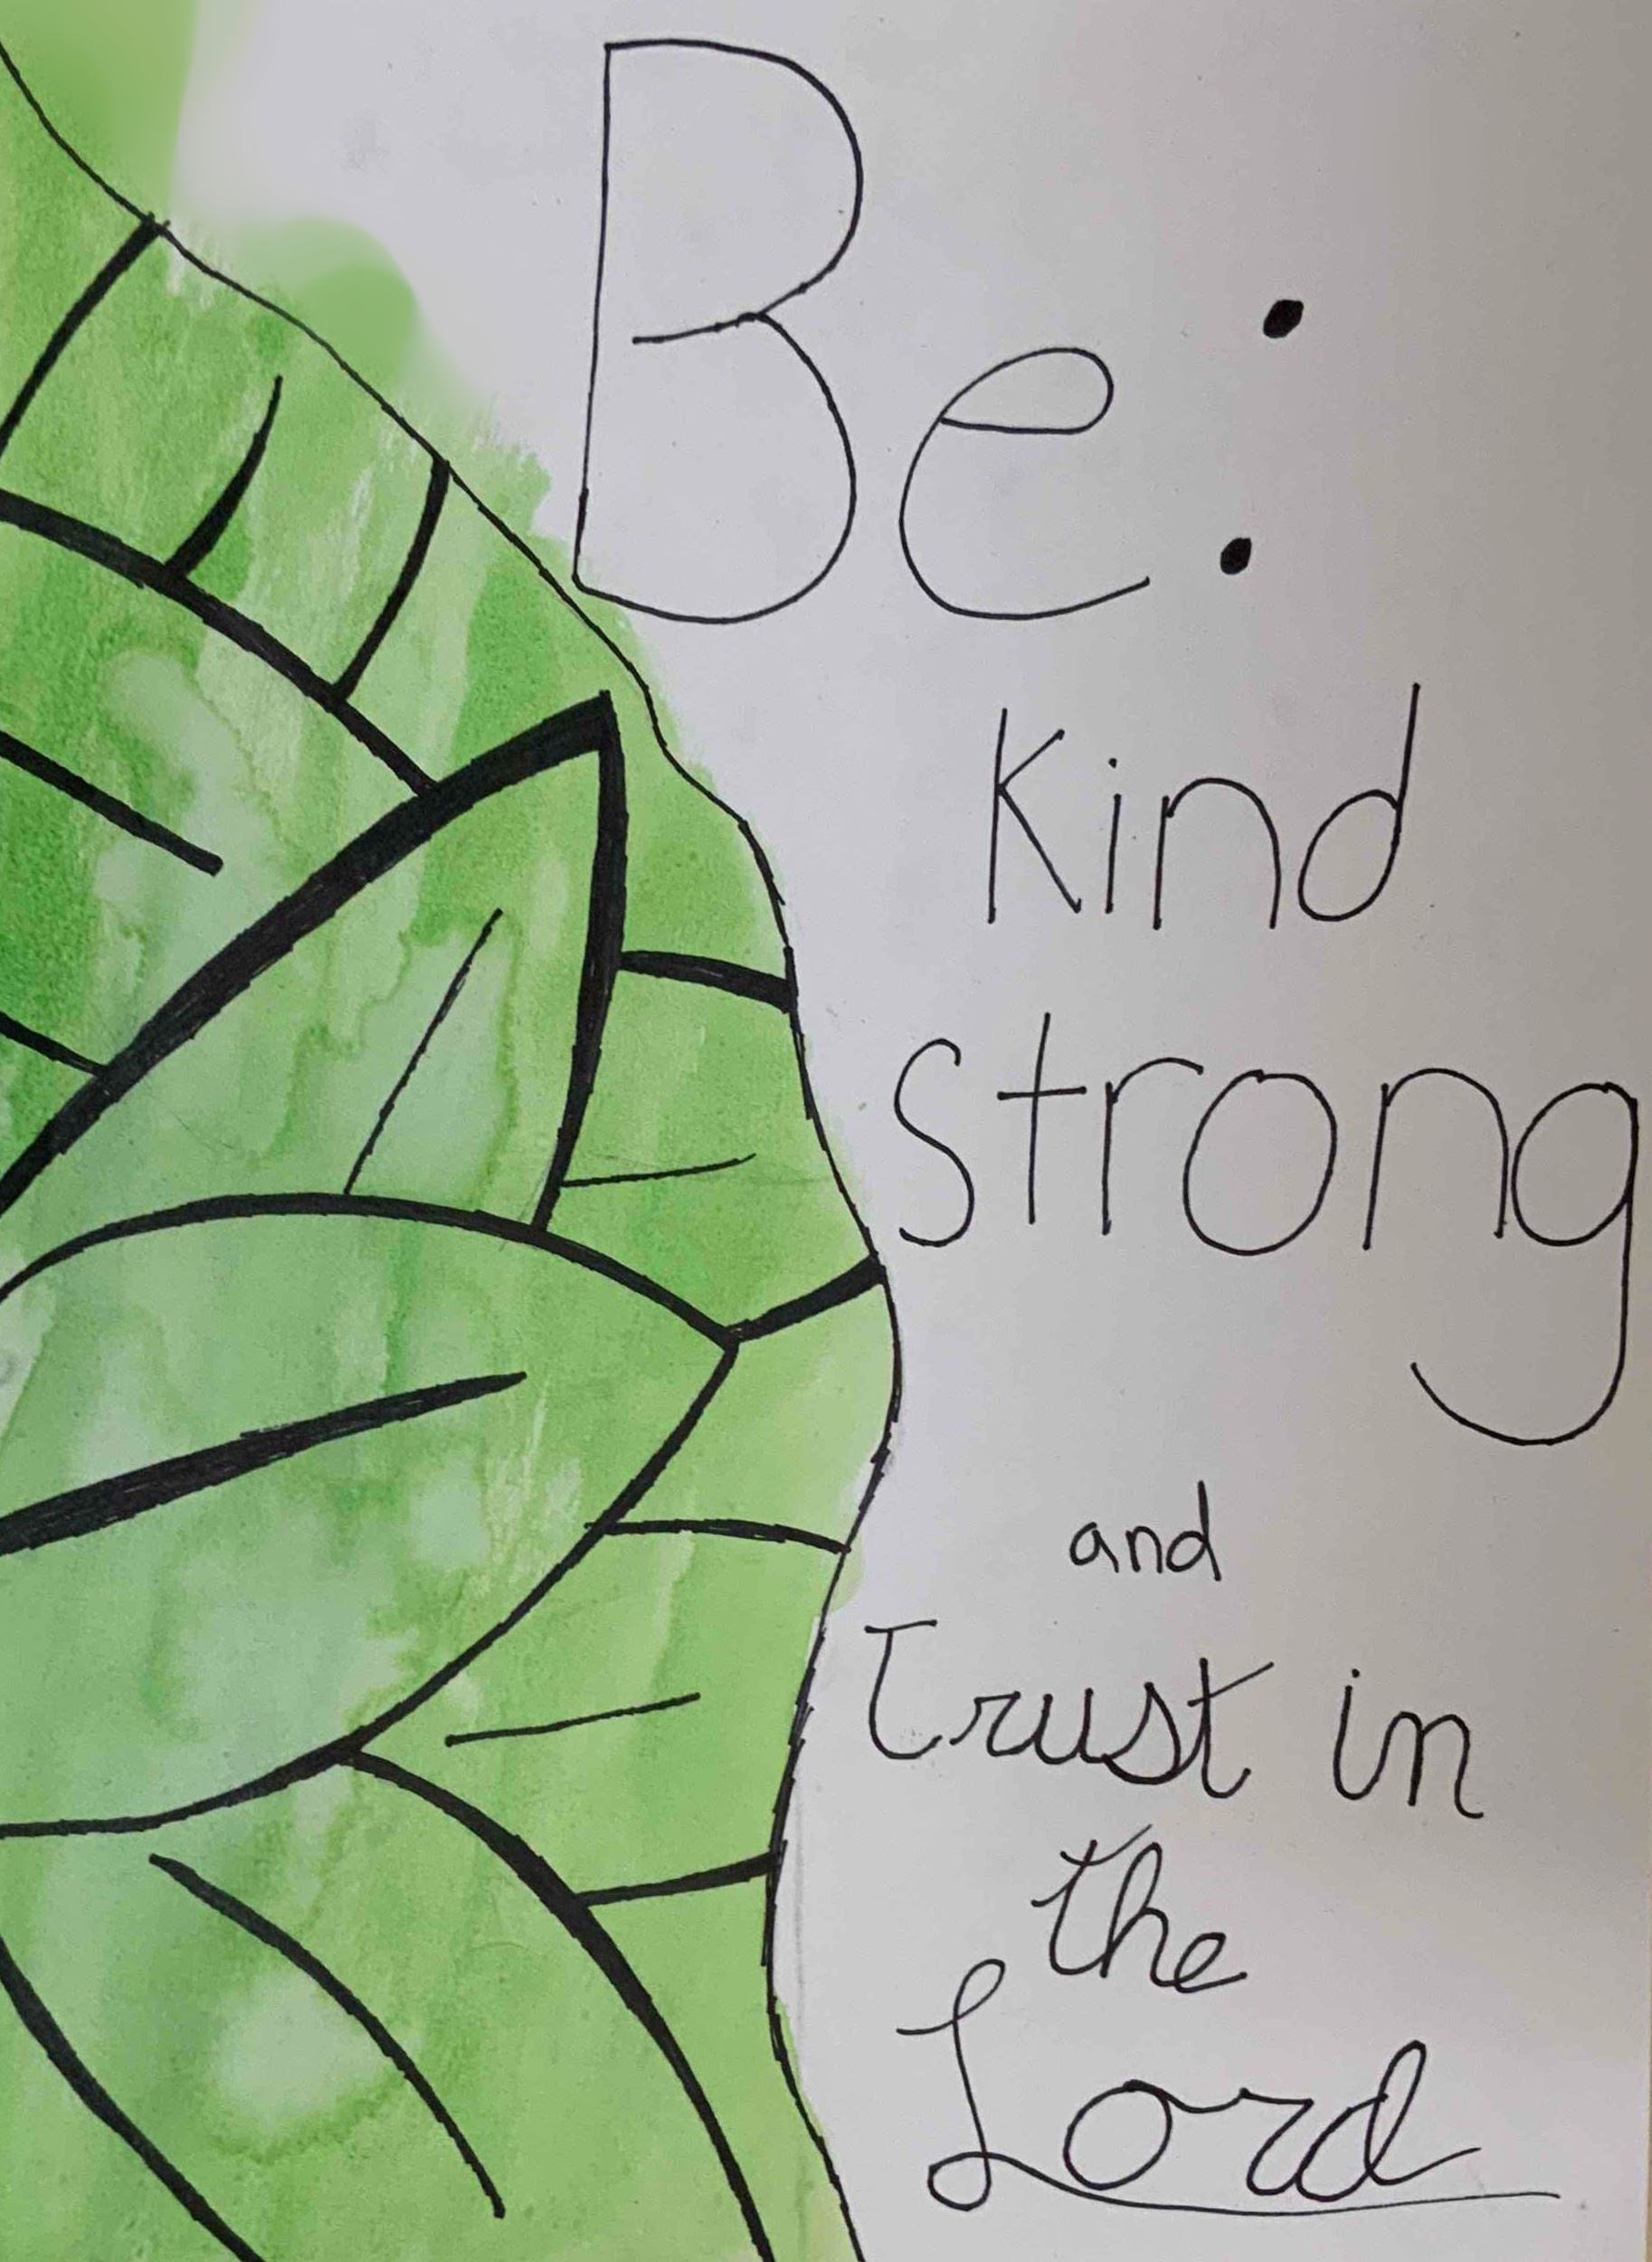 Be:
Kind
strong
and
Trust in
the
Lord